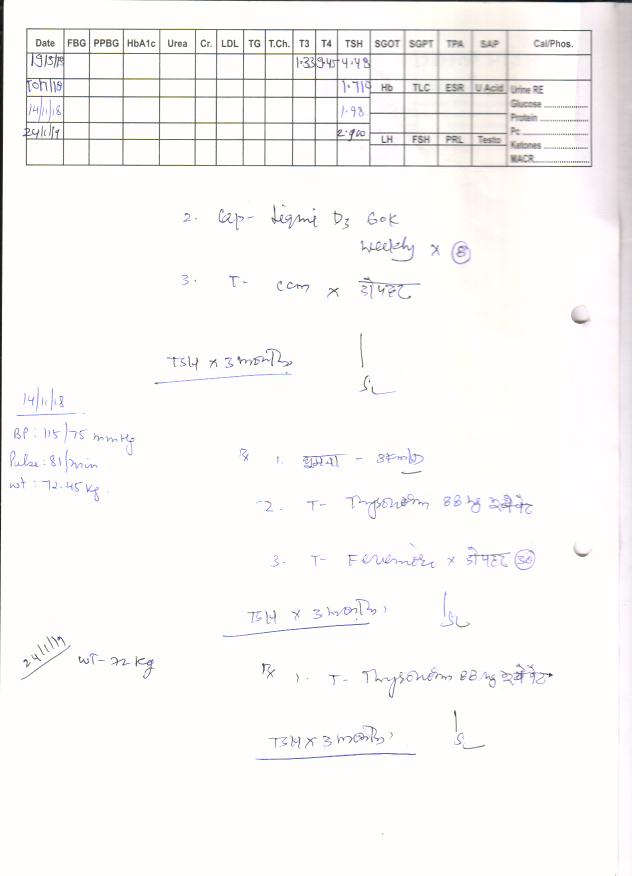 Date FBG PPBG HbA1c Urea Cr. LDL TG T.Ch. T3 T4 TSH SGOT SGPT TPA SAP Cal/Phos.
1.33 9.45 4.48
1.719 Hb TLC ESR U Acid Urine RE
Glucose
14/11/18 1.98
Protein
24/1/19 2.900
Pc
LH FSH PRL Testo Ketones
MACR
2. Cap- D3 60K
weekly x 8
3. T- CCM x दोपहर
TSH x 3 months
14/11/18
BP: 115/75 mmHg
Pulse: 81/min
wt: 72.45 kg.
Rx 1. घूमना -
2. T- Thyronorm 88
3. T- x दोपहर 30
TSH x 3 months
24/1/19 WT-72 Kg
Rx 1. T- Thyronorm 88
TSH x 3 months